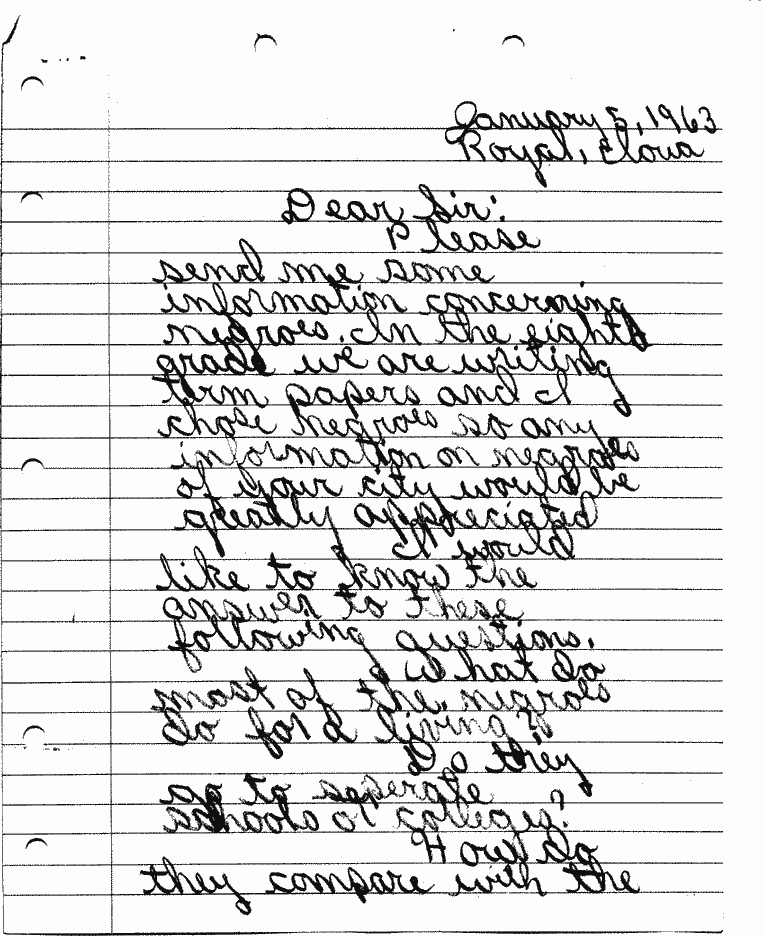 January 5, 1963
Royal, Iowa
Dear Sir:
Please
send me some
information concerning
negroes. In the eighth
grade we are writing
term papers and I
chose negroes so any
information on negroes
of your city would be
greatly appreciated
I would
like to know the
answer to these
following questions.
What do
most of the negroes
do for a living?
Do they
go to seperate
schools or colleges?
How do
they compare with the